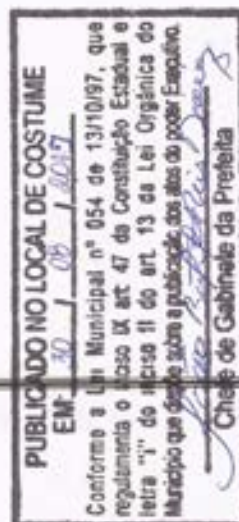 PUBLICADO NO LOCAL DE COSTUME
EM: 30 / 08 / 2017
Conforme a Lei Municipal nº 054 de 13/10/97, que
regulamenta o inciso IX art 47 da Constituição Estadual e
letra "i" do inciso II do art 13 da Lei Orgânica do
Município que dispõe sobre a publicação dos atos do poder Executivo.
Chefe de Gabinete da Prefeita